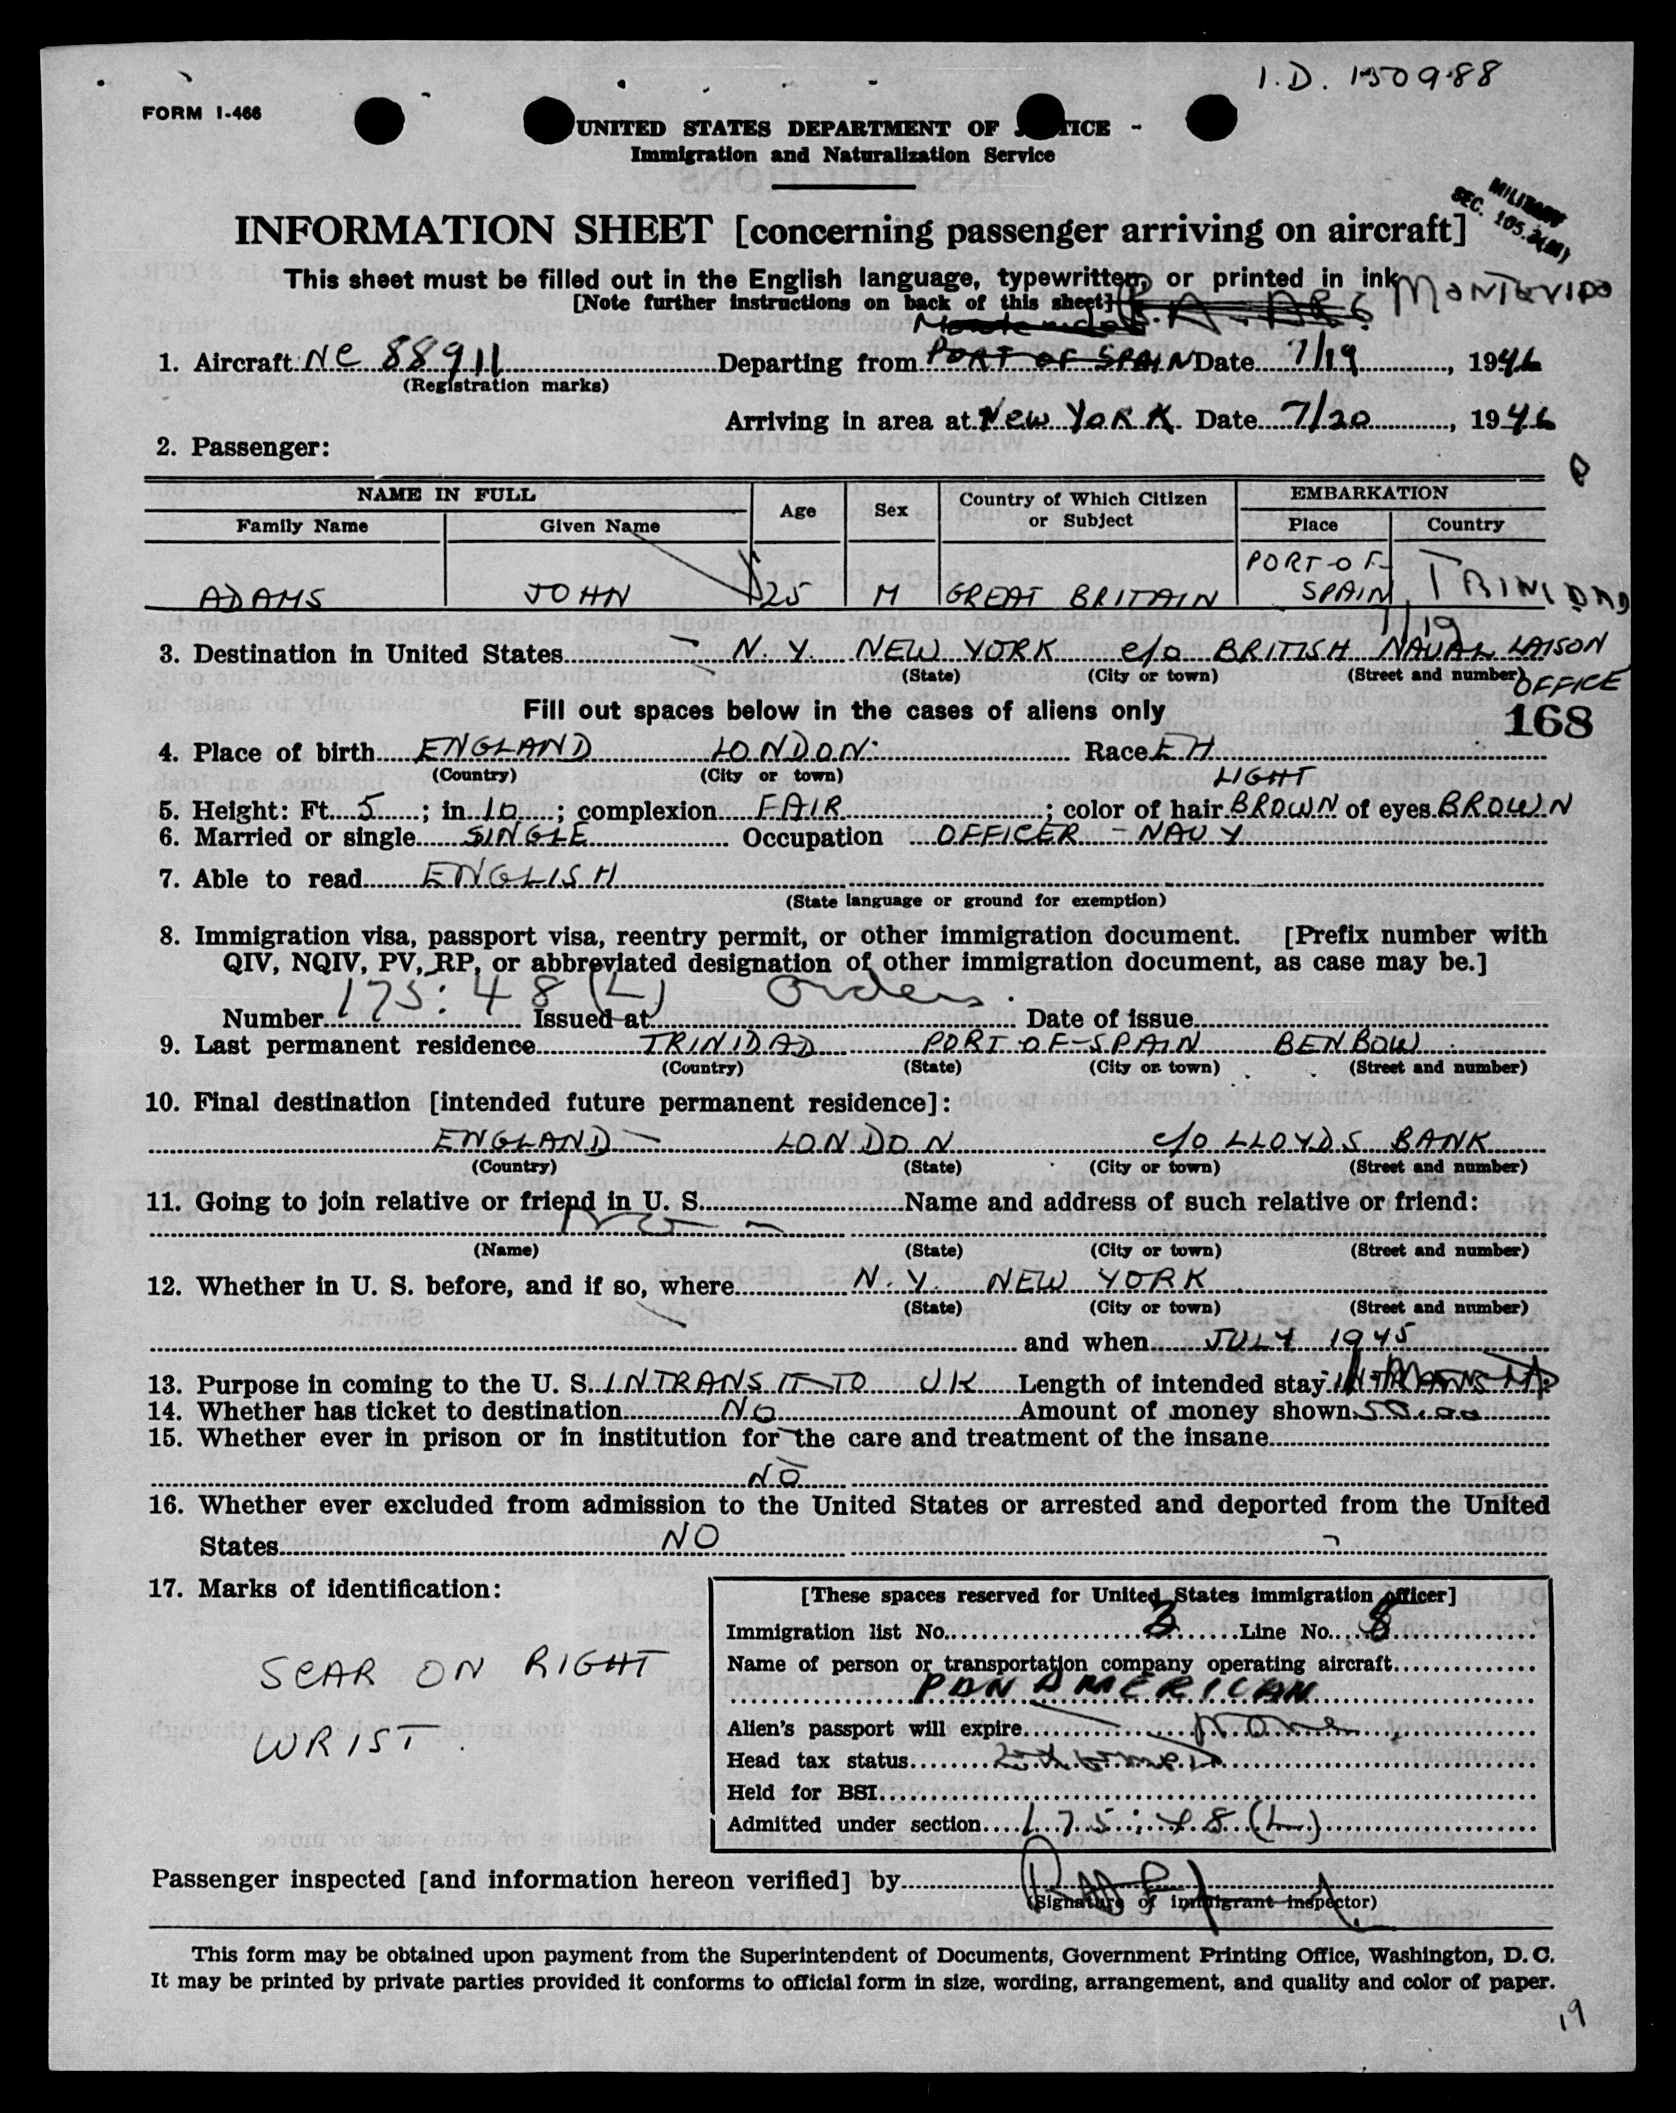 I.D. 150988
FORM I-466
UNITED STATES DEPARTMENT OF J TICE
Immigration and Naturalization Service
MILITARY
SEC. 165.
INFORMATION SHEET [concerning passenger arriving on aircraft]
This sheet must be filled out in the English language, typewritten, or printed in ink
[Note further instructions on back of this sheet]
B.A - ARG MONTEVIDO
Montevideo
1. Aircraft NC 88911 Departing from PORT OF SPAIN Date 7/19, 1946
(Registration marks)
Arriving in area at New YORK. Date 7/20, 1946
2. Passenger:
NAME IN FULL Age Sex Country of Which Citizen or Subject EMBARKATION
Family Name Given Name Place Country
ADAMS JOHN 25 M GREAT BRITAIN PORT-OF-SPAIN TRINIDAD
7/19
3. Destination in United States N.Y. NEW YORK c/o BRITISH NAVAL LAISON OFFICE
(State) (City or town) (Street and number)
Fill out spaces below in the cases of aliens only
168
4. Place of birth ENGLAND LONDON. Race EH
(Country) (City or town)
LIGHT
5. Height: Ft. 5; in. 10; complexion FAIR; color of hair BROWN of eyes BROWN
6. Married or single SINGLE Occupation OFFICER - NAVY
7. Able to read ENGLISH
(State language or ground for exemption)
8. Immigration visa, passport visa, reentry permit, or other immigration document. [Prefix number with
QIV, NQIV, PV, RP, or abbreviated designation of other immigration document, as case may be.]
175:48(L) Orders.
Number Issued at Date of issue
9. Last permanent residence TRINIDAD PORT OF-SPAIN BENBOW
(Country) (State) (City or town) (Street and number)
10. Final destination [intended future permanent residence]:
ENGLAND - LONDON c/o LLOYDS BANK
(Country) (State) (City or town) (Street and number)
11. Going to join relative or friend in U. S. Name and address of such relative or friend:
(Name) (State) (City or town) (Street and number)
12. Whether in U. S. before, and if so, where N.Y. NEW YORK
(State) (City or town) (Street and number)
and when JULY 1945
13. Purpose in coming to the U. S. INTRANSIT TO UK Length of intended stay INTRANSIT
14. Whether has ticket to destination NO Amount of money shown 50.00
15. Whether ever in prison or in institution for the care and treatment of the insane
NO
16. Whether ever excluded from admission to the United States or arrested and deported from the United
States NO
17. Marks of identification:
SCAR ON RIGHT
WRIST.
[These spaces reserved for United States immigration officer]
Immigration list No. 3 Line No. 8
Name of person or transportation company operating aircraft
PAN AMERICAN
Alien's passport will expire None
Head tax status
Held for BSI
Admitted under section 175:48(L)
Passenger inspected [and information hereon verified] by
(Signature of immigrant inspector)
This form may be obtained upon payment from the Superintendent of Documents, Government Printing Office, Washington, D. C.
It may be printed by private parties provided it conforms to official form in size, wording, arrangement, and quality and color of paper.
19